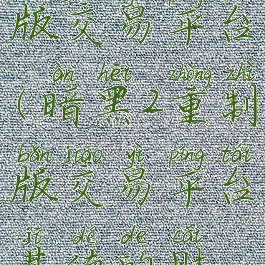 版交易平台
àn hēi zhòng zhì
(暗黑2重制
bǎn jiāo yì píng tái
版交易平台
jī dé de cái